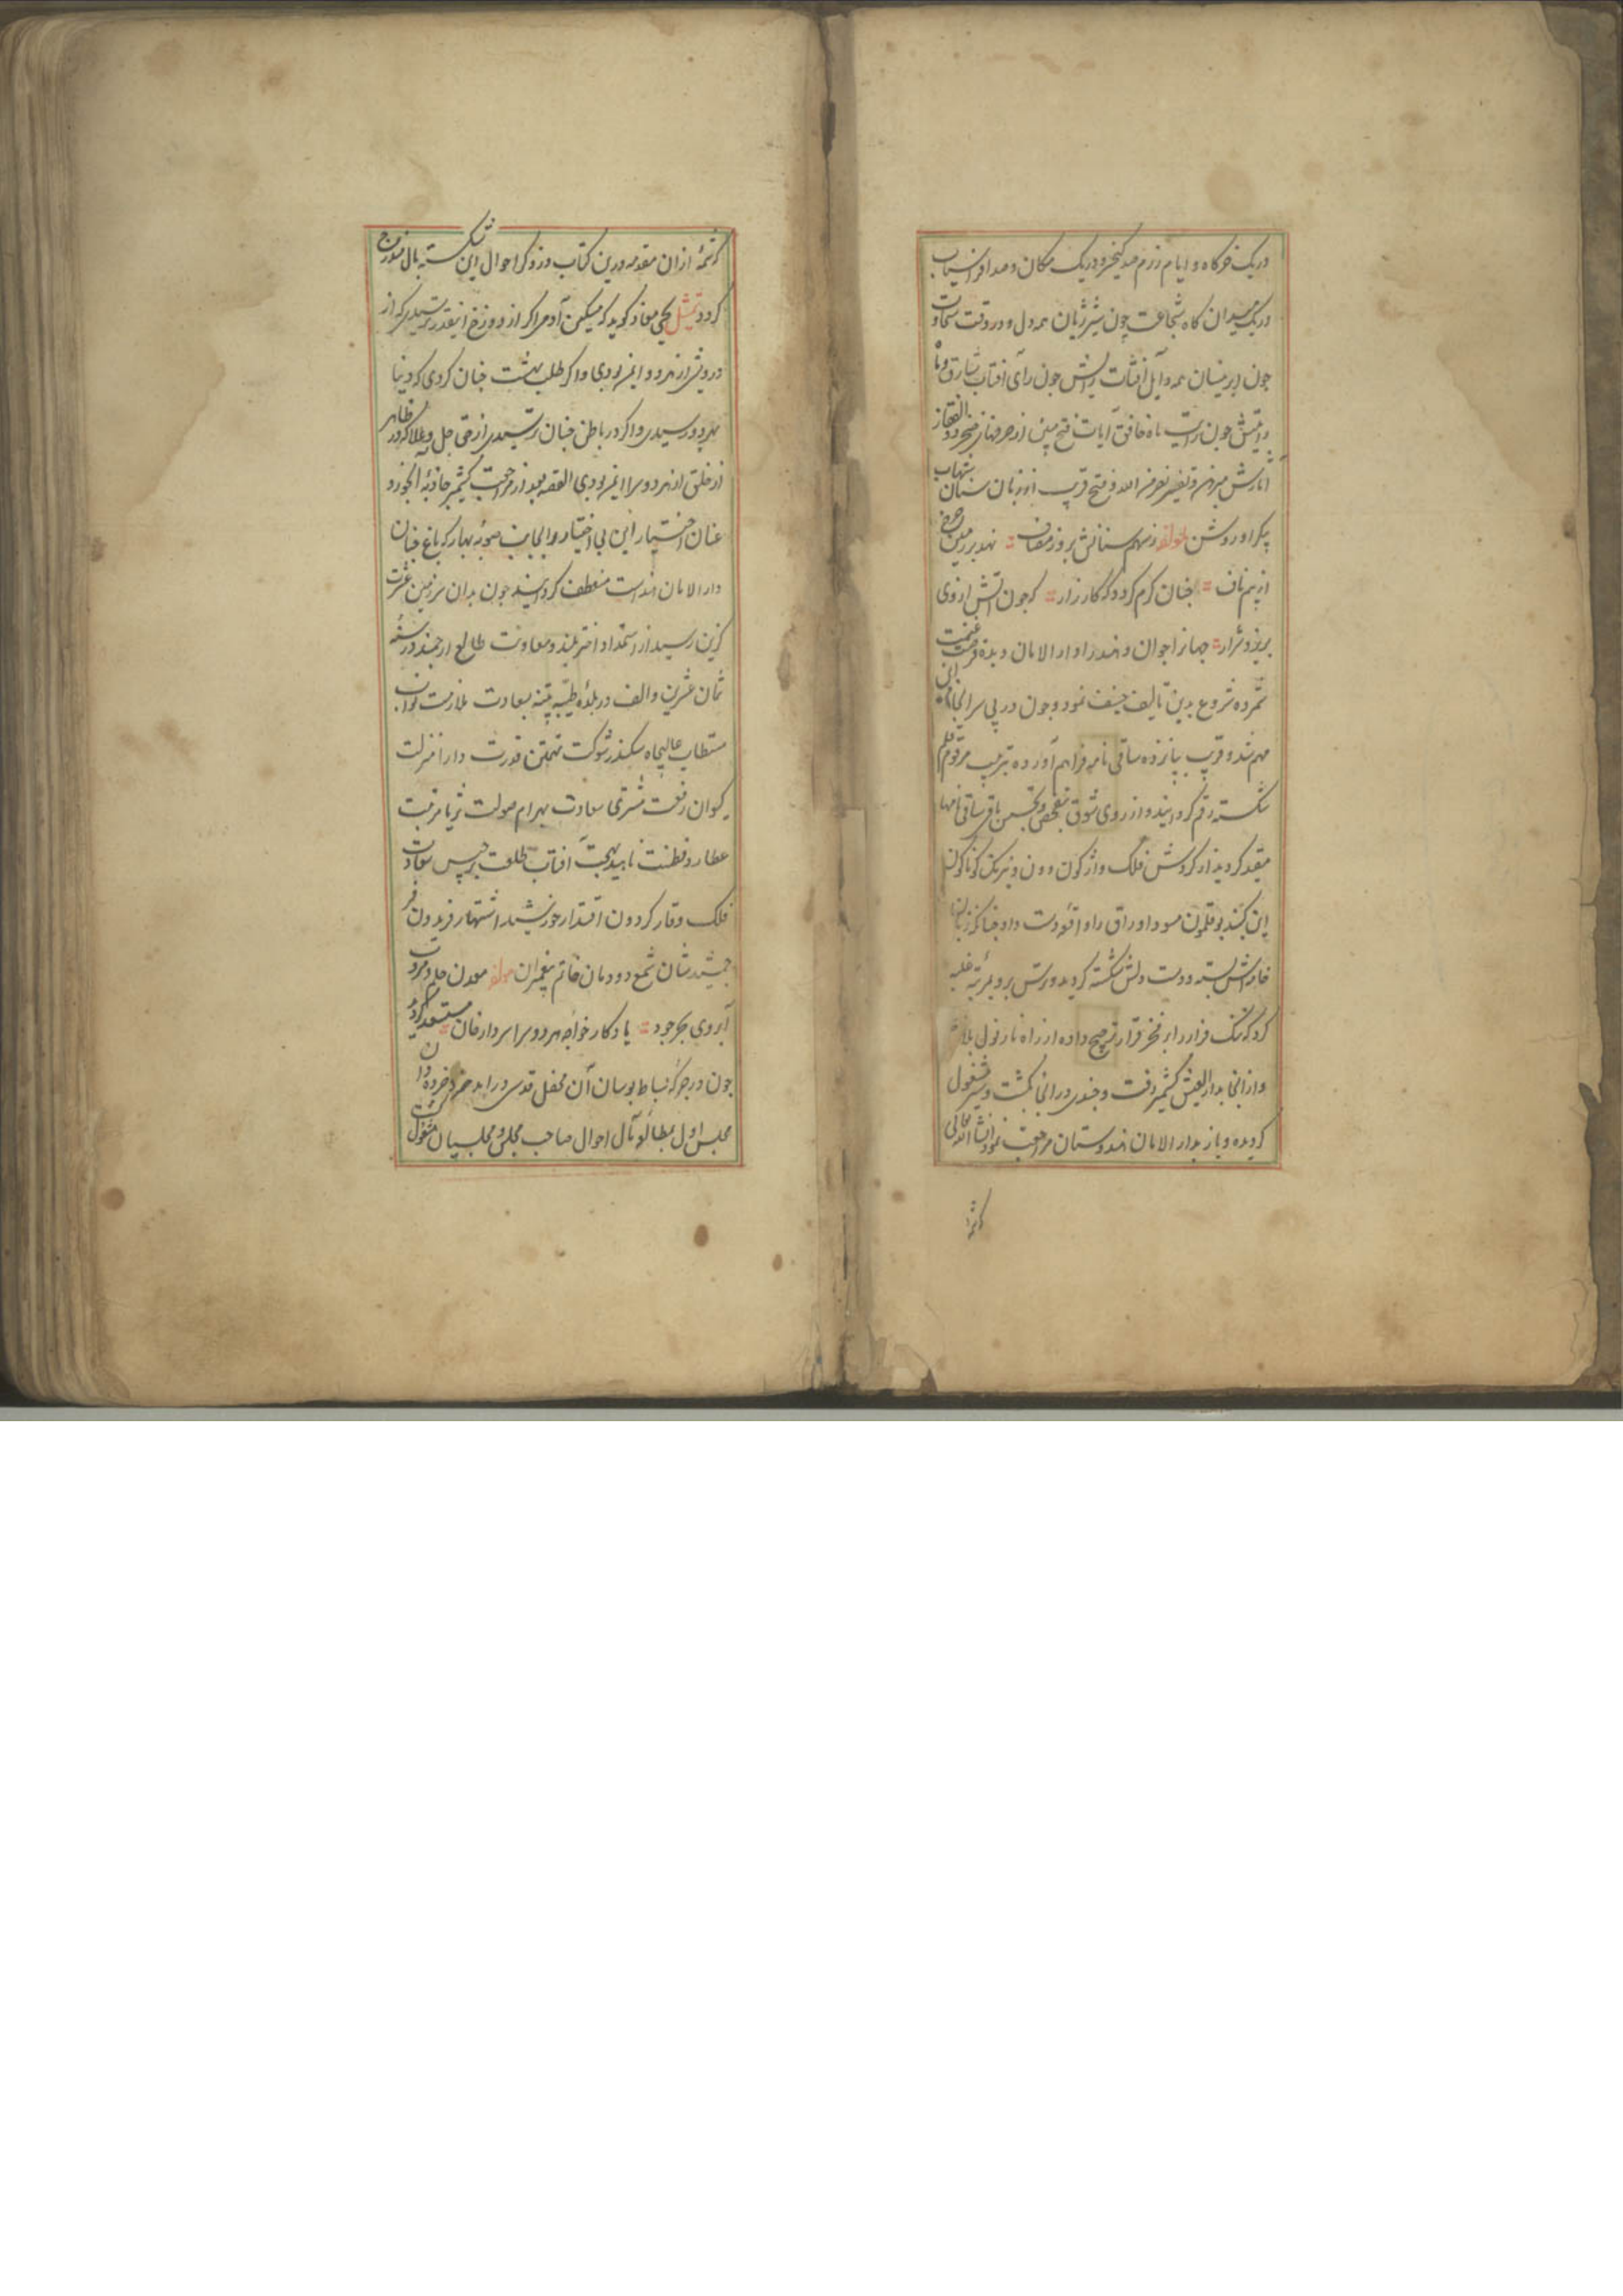 در یک خرکاه و ایام رزم صد کیخسرو در یک مکان و صد افراسیاب
در یک میدان کاه شجاعت چون شیر ژیان همه دل و در وقت سخاوت
چون ابر نیسان همه
رایتش چون رایت ماه خافق آیات فتح مبین از
نصر من الله و فتح قریب از زبان سنان
پیکر او روشن لمولفه ز سهم سنانش بروز مصاف نهد بر زمین
از بیم ناف چنان کرم کردد که کارزار که چون آتش از وی
بریزد شرار دار الامان دیده فرصت غنیمت
شمرده شروع بدین تالیف نمود و چون در پی سرانجام این
مهم شد و قریب پانزده ساقی نامه فراهم آورده بترتیب مرقوم قلم
شکسته رقم کردانید و از روی شوق بتفحص و تجسس باقی ساقی نامها
مقید کردید از کردش فلک واژکون دون و نیرنک کوناکون
این کنبد بوقلمون
خاطرش بسته و دست دلش شکسته کردید
کرد که ننک فرار را بر فخر قرار ترجیح داده از راه نارنول
و از انجا بدار العیش کشمیر رفت و چندی در انجا بکشت و سیر مشغول
کردیده و باز بدار الامان هندوستان مراجعت نمود انشاء الله تعالی
که شمهٔ از ان مقدمه درین کتاب در ذکر احوال این شکسته بال مندرج
کردد تمثیل یحیی معاذ کوید که مسکین آدمی اکر از دوزخ اینقدر ترسیدی که از
درویشی از هر دو ایمن بودی و اکر طلب بهشت چنان کردی که دنیا
بهر دو رسیدی و اکر در باطن چنان ترسیدی از حق جل و علا که در ظاهر
از خلق از هر دو سرا ایمن بودی القصه بعد از مراجعت کشمیر جاذبه آبخورد
عنان اختیار این بی اختیار را بجانب صوبه بهار که باغ جنان
دار الامان هند است منعطف کردانید چون بدان سرزمین عشرت
کزین رسید از استمداد اختر بلند و معاونت طالع ارجمند در سنه
ثمان عشرین و الف در بلده طیبه پتنه بسعادت ملازمت نواب
مستطاب عالیجاه سکندر شوکت تهمتن قدرت دارا منزلت
کیوان رفعت مشتری سعادت بهرام صولت ثریا مرتبت
عطارد فطنت ناهید بهجت آفتاب طلعت برجیس سعادت
فلک وقار کردون اقتدار خورشید اشتهار فریدون فر
جمشید نشان شمع دودمان خاتم پیغمبران لمولفه معدن حلم و مروت
آبروی بحر جود یادکار خواجه هر دو سرا سردار خان مستسعد کردید
چون در جرکه بساط بوسان آن محفل قدسی در آمد
مجلس اول بمطالعه مآل احوال صاحب مجلس و مجلسیان مشغول